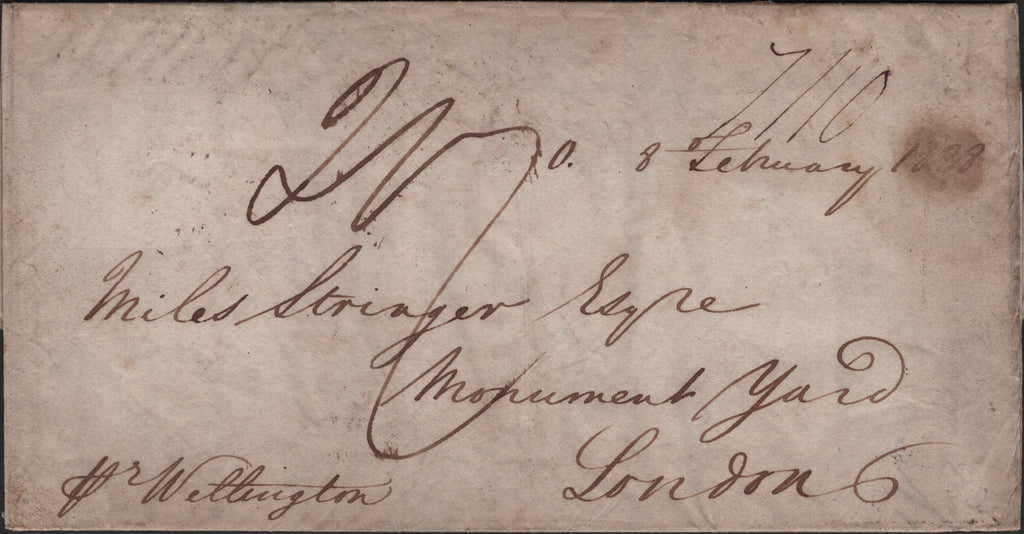 7/10
0. 8 February 1833
Miles Stringer Esqre
Monument Yard
London
pr Wellington